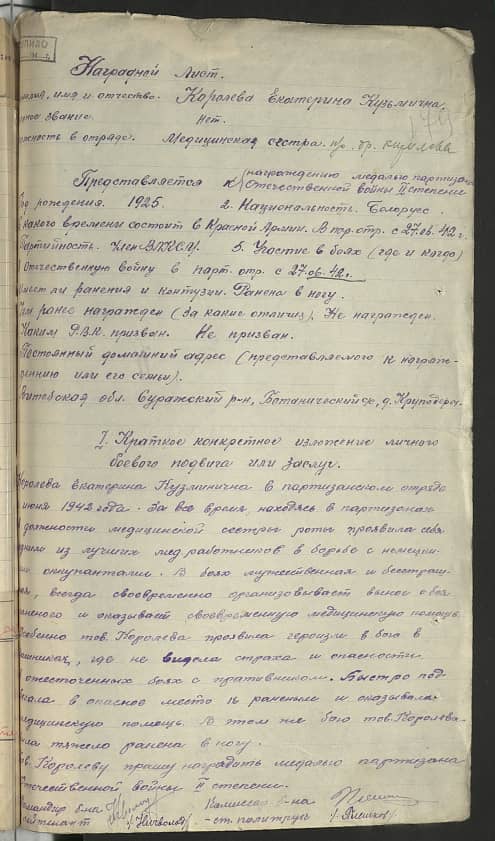 Наградной лист.
имя и отчество. Королева Екатерина Кузьмична
звание. Нет.
в отряде. Медицинская сестра
Представляется к награждению медалью партизана
Отечественной войны II степени
рождения. 1925. 2. Национальность. Белорус.
какого времени состоит в Красной Армии. В пар. отр. с 27.06.42 г.
Член ВЛКСМ. 5. Участие в боях (где и когда)
Отечественную войну в парт. отр. с 27.06.42 г.
ли ранения и контузии. Ранена в ногу.
ранее награжден (за какие отличия). Не награжден.
Каким Р.В.К. призван. Не призван.
Постоянный домашний адрес (представляемого к награж-
дению или его семьи).
Витебская обл. Суражский р-н,
I. Краткое конкретное изложение личного
боевого подвига или заслуг.
Королева Екатерина Кузминична в партизанском отряде
июня 1942 года. За все время, находясь в партизанах
в должности медицинской сестры роты проявила себя
из лучших мед. работников в борьбе с немецки-
оккупантами. В боях мужественная и бесстраш-
всегда своевременно организовывает вынос с боя
и оказывает своевременную медицинскую помощь.
тов. Королева проявила героизм в бою в
где не видела страха и опасности
ожесточенных боях с пративником. Быстро под-
в опасное место к раненым и оказывала
медицинскую помощь. В этом же бою тов. Королева
тяжело ранена в ногу.
Королеву прошу наградить медалью партизана
Отечественной войны II степени.
Командир Комиссар
- ст. политрук